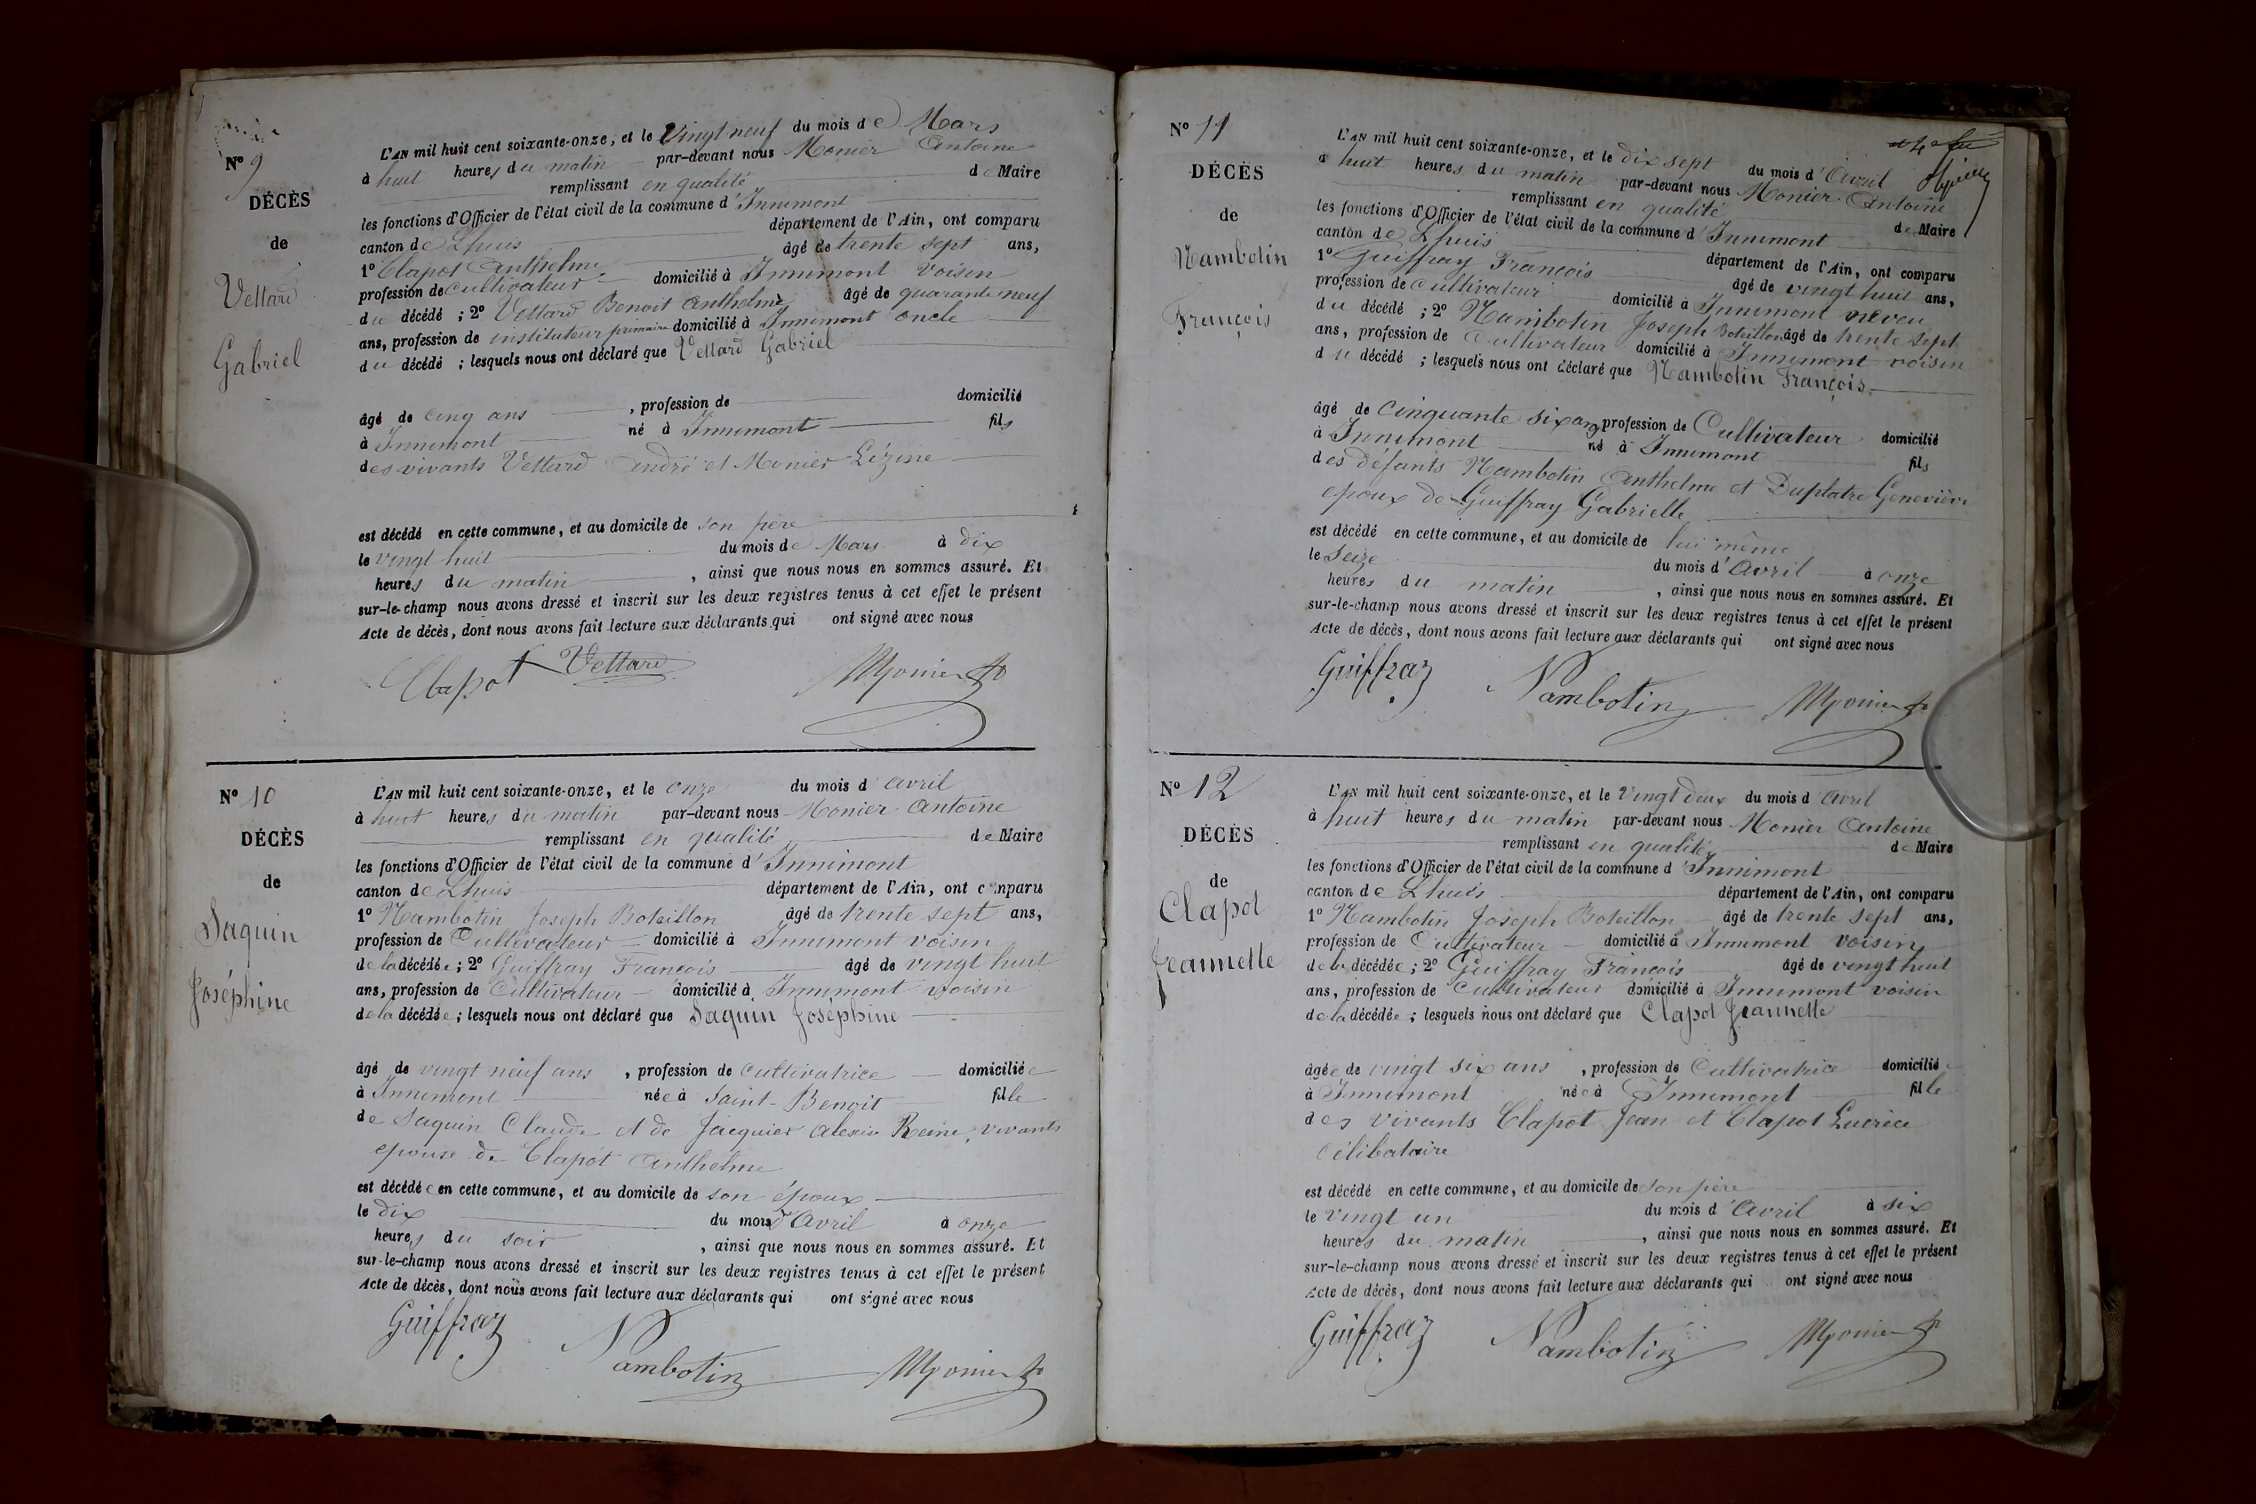 Nº 9
DÉCÈS
de
Vettard
Gabriel
L'AN mil huit cent soixante-onze, et le Vingt neuf du mois de Mars
à huit heures du matin par-devant nous Monier Antoine
remplissant en qualité de Maire
les fonctions d'Officier de l'état civil de la commune d'Innimont
canton de Lhuis département de l'Ain, ont comparu
1º Clapot Anthelme âgé de trente sept ans,
profession de Cultivateur domicilié à Innimont voisin
du décédé ; 2º Vettard Benoit Anthelme âgé de quarante neuf
ans, profession de instituteur primaire domicilié à Innimont oncle
du décédé ; lesquels nous ont déclaré que Vettard Gabriel
âgé de cinq ans , profession de domicilié
à Innimont né à Innimont fils
des vivants Vettard André et Monier Lézine
est décédé en cette commune, et au domicile de son père
le vingt huit du mois de Mars à dix
heures du matin , ainsi que nous nous en sommes assuré. Et
sur-le-champ nous avons dressé et inscrit sur les deux registres tenus à cet effet le présent
Acte de décès, dont nous avons fait lecture aux déclarants qui ont signé avec nous
Clapot Vettard Monier
Nº 10
DÉCÈS
de
Saquin
Joséphine
L'AN mil huit cent soixante-onze, et le onze du mois d'avril
à huit heures du matin par-devant nous Monier Antoine
remplissant en qualité de Maire
les fonctions d'Officier de l'état civil de la commune d'Innimont
canton de Lhuis département de l'Ain, ont comparu
1º Nambotin Joseph Boteillon âgé de trente sept ans,
profession de Cultivateur domicilié à Innimont voisin
de la décédée ; 2º Guiffray François âgé de vingt huit
ans, profession de Cultivateur domicilié à Innimont voisin
de la décédée ; lesquels nous ont déclaré que Saquin Joséphine
âgé de vingt neuf ans , profession de cultivatrice domiciliée
à Innimont née à Saint-Benoit fille
de Saquin Claude et de Jacquier Alexis Reine, vivants
epouse de Clapot Anthelme
est décédée en cette commune, et au domicile de son époux
le dix du mois d'Avril à onze
heures du soir , ainsi que nous nous en sommes assuré. Et
sur-le-champ nous avons dressé et inscrit sur les deux registres tenus à cet effet le présent
Acte de décès, dont nous avons fait lecture aux déclarants qui ont signé avec nous
Guiffray Nambotin Monier
Nº 11
DÉCÈS
de
Nambotin
François
L'AN mil huit cent soixante-onze, et le dix sept du mois d'Avril
à huit heures du matin par-devant nous Monier Antoine
remplissant en qualité de Maire
les fonctions d'Officier de l'état civil de la commune d'Innimont
canton de Lhuis département de l'Ain, ont comparu
1º Guiffray François âgé de vingt huit ans,
profession de cultivateur domicilié à Innimont neveu
du décédé ; 2º Nambotin Joseph Boteillon âgé de trente sept
ans, profession de Cultivateur domicilié à Innimont voisin
du décédé ; lesquels nous ont déclaré que Nambotin François
âgé de cinquante six ans profession de Cultivateur domicilié
à Innimont né à Innimont fils
des défunts Nambotin Anthelme et Duplatre Geneviève
epoux de Guiffray Gabrielle
est décédé en cette commune, et au domicile de lui même
le Seize du mois d'Avril à onze
heures du matin , ainsi que nous nous en sommes assuré. Et
sur-le-champ nous avons dressé et inscrit sur les deux registres tenus à cet effet le présent
Acte de décès, dont nous avons fait lecture aux déclarants qui ont signé avec nous
Guiffray Nambotin Monier
Nº 12
DÉCÈS
de
Clapot
Jeannette
L'AN mil huit cent soixante-onze, et le vingt deux du mois d'Avril
à huit heures du matin par-devant nous Monier Antoine
remplissant en qualité de Maire
les fonctions d'Officier de l'état civil de la commune d'Innimont
canton de Lhuis département de l'Ain, ont comparu
1º Nambotin Joseph Boteillon âgé de trente sept ans,
profession de Cultivateur domicilié à Innimont voisin
de la décédée ; 2º Guiffray François âgé de vingt huit
ans, profession de Cultivateur domicilié à Innimont voisin
de la décédée ; lesquels nous ont déclaré que Clapot Jeannette
âgée de vingt six ans , profession de Cultivatrice domicilié
à Innimont née à Innimont fille
des vivants Clapot Jean et Clapot Lucrèce
célibataire
est décédé en cette commune, et au domicile de son père
le vingt un du mois d'Avril à six
heures du matin , ainsi que nous nous en sommes assuré. Et
sur-le-champ nous avons dressé et inscrit sur les deux registres tenus à cet effet le présent
Acte de décès, dont nous avons fait lecture aux déclarants qui ont signé avec nous
Guiffray Nambotin Monier